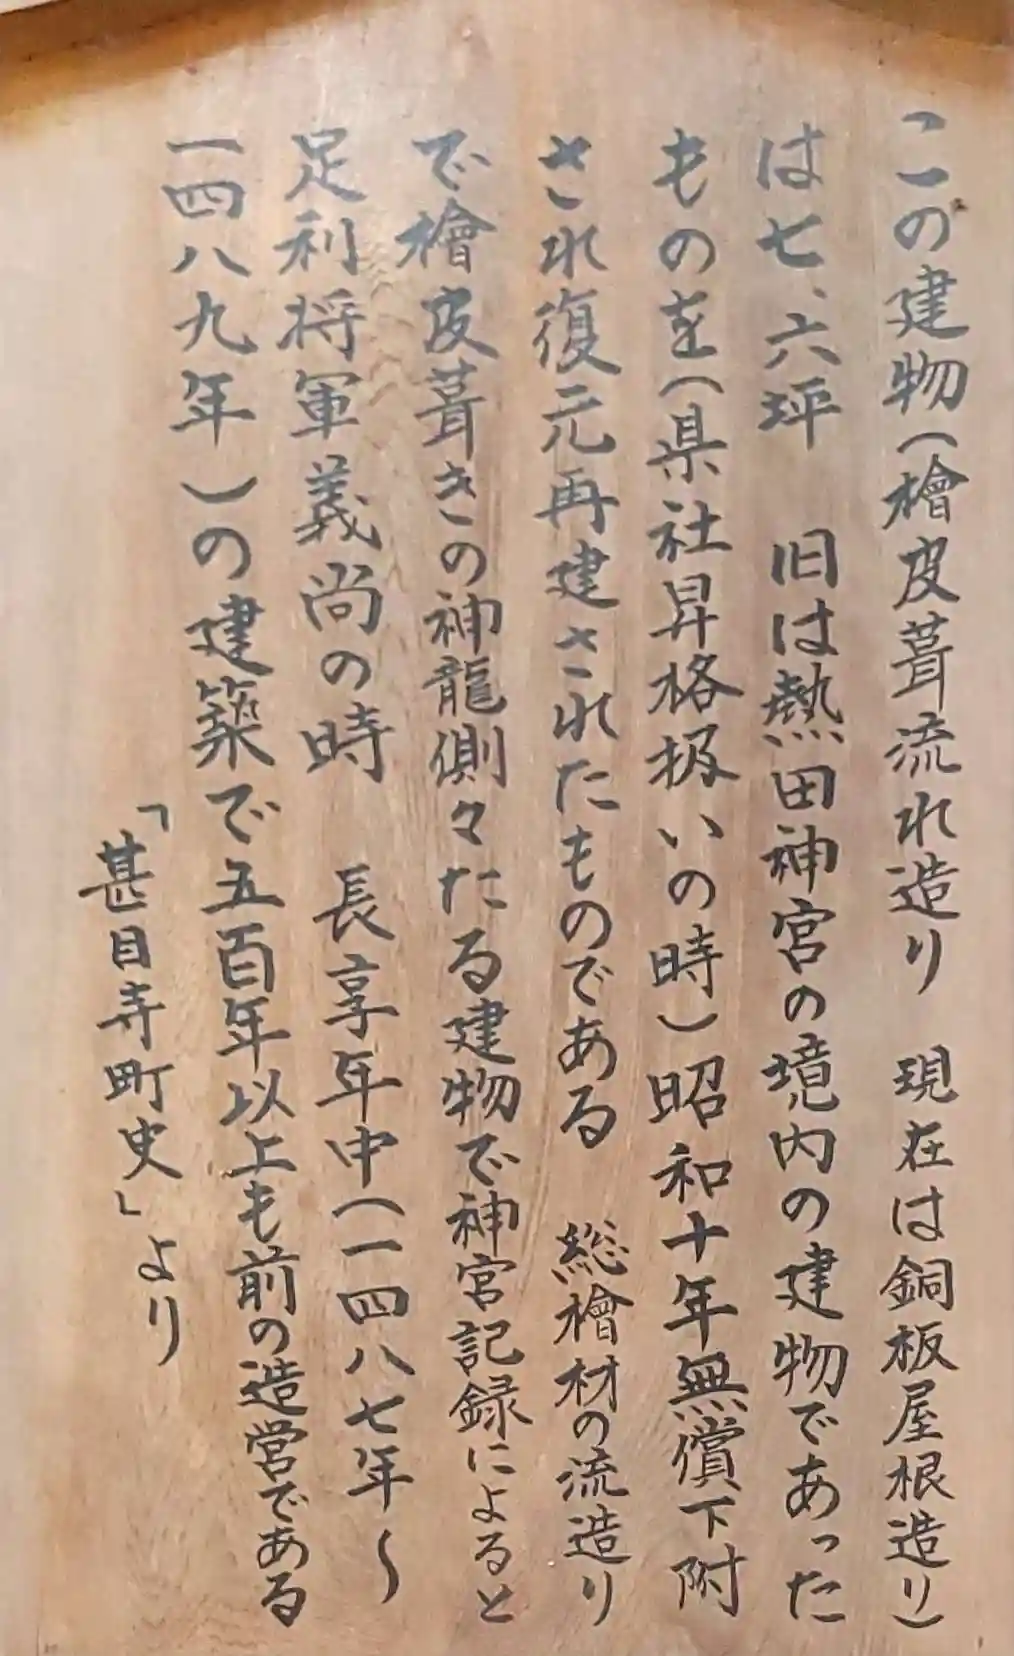 この建物(檜皮葺流れ造り 現在は銅板屋根造り)
は七、六坪 旧は熱田神宮の境内の建物であった
ものを(県社昇格扱いの時)昭和十年無償下附
され復元再建されたものである 総檜材の流造り
で檜皮葺きの神龍側々たる建物で神宮記録によると
足利将軍義尚の時 長享年中(一四八七年～
一四八九年)の建築で五百年以上も前の造営である
「甚目寺町史」より